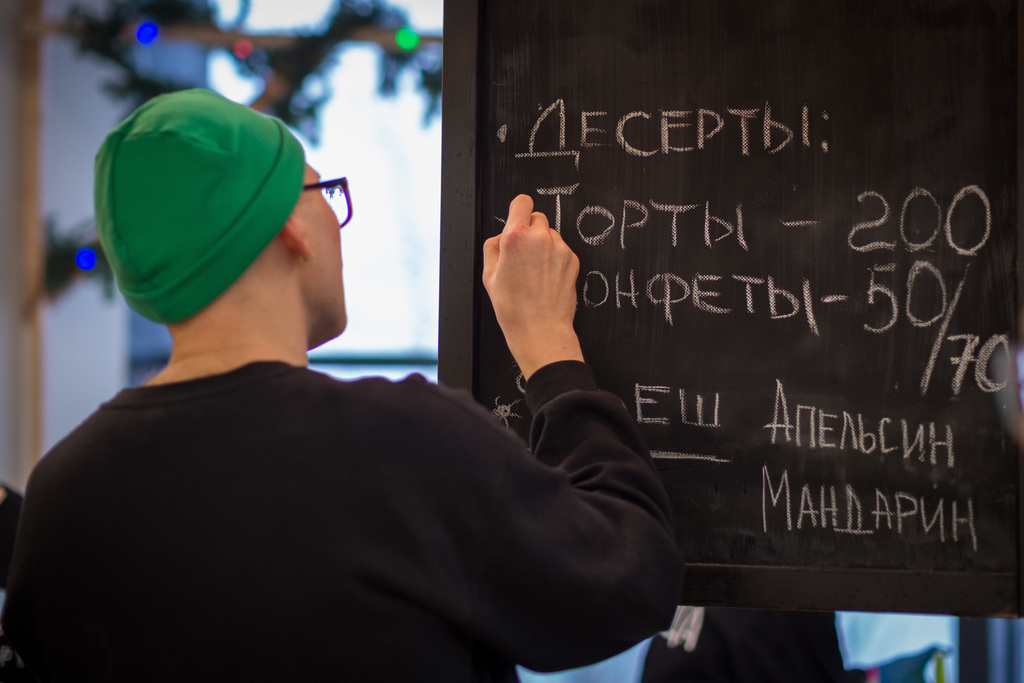 · Десерты:
Торты - 200
онфеты - 50/70
еш Апельсин
Мандарин